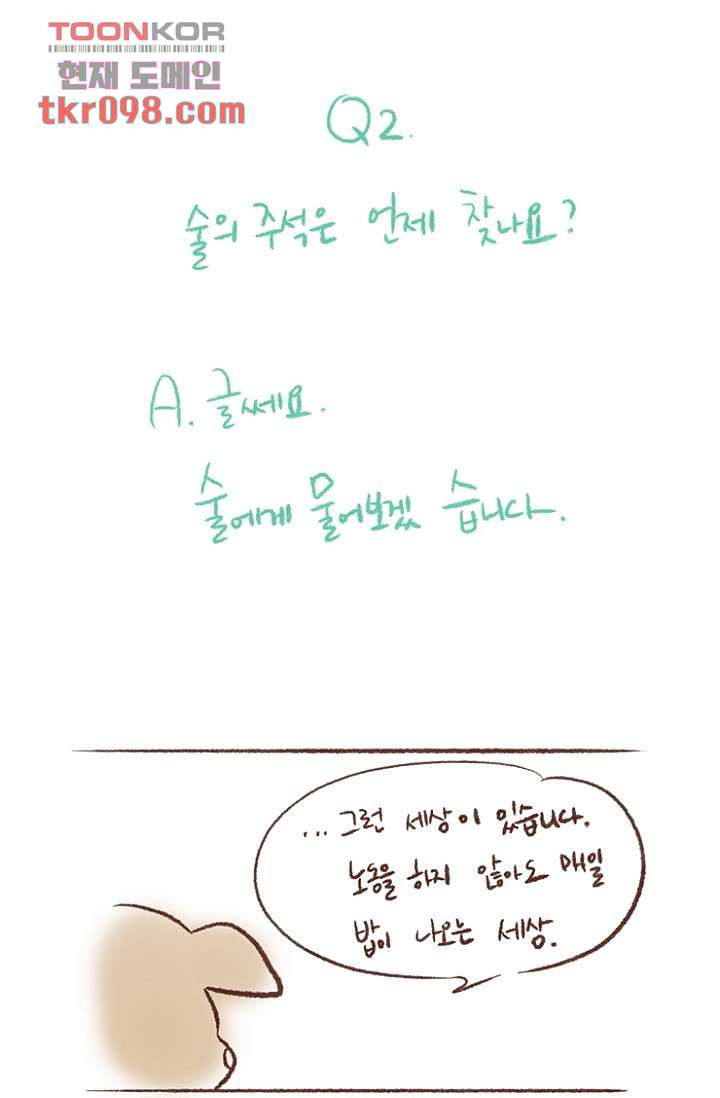 TOONKOR
현재 도메인
tkr098.com
Q2.
술의 주석은 언제 찾나요?
A. 글쎄요.
술에게 물어보겠습니다.
... 그런 세상이 있습니다.
노동을 하지 않아도 매일
밥이 나오는 세상.